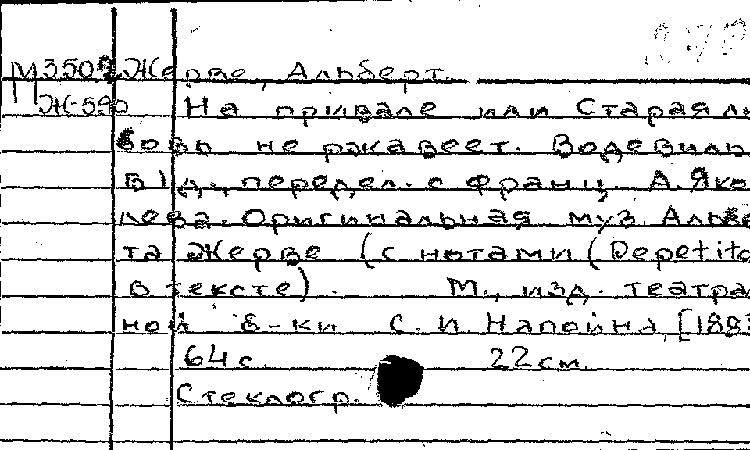 М3502 Жерве, Альберт.
Ж-590 На привале или Старая лю
бовь не ржавеет. Водевиль
в 1 д., передел. с франц. А. Яко
лева. Оригинальная муз. Альбе
та Жерве (с нотами (
в тексте). М., изд. театра
ной б-ки С. И. Напойна, [1883
64 с. 22 см.
Стеклогр.